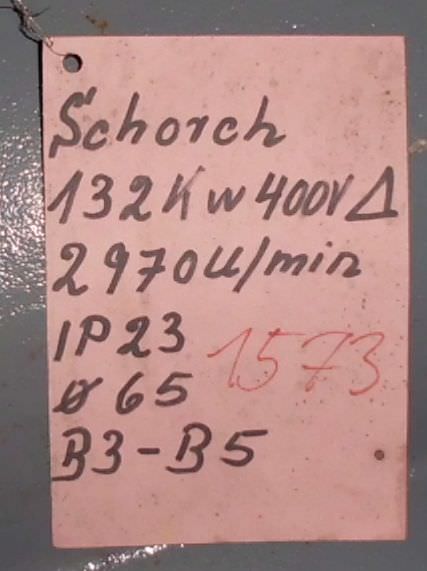 Schorch
132KW 400V Δ
2970U/min
IP23
1573
ø 65
B3-B5